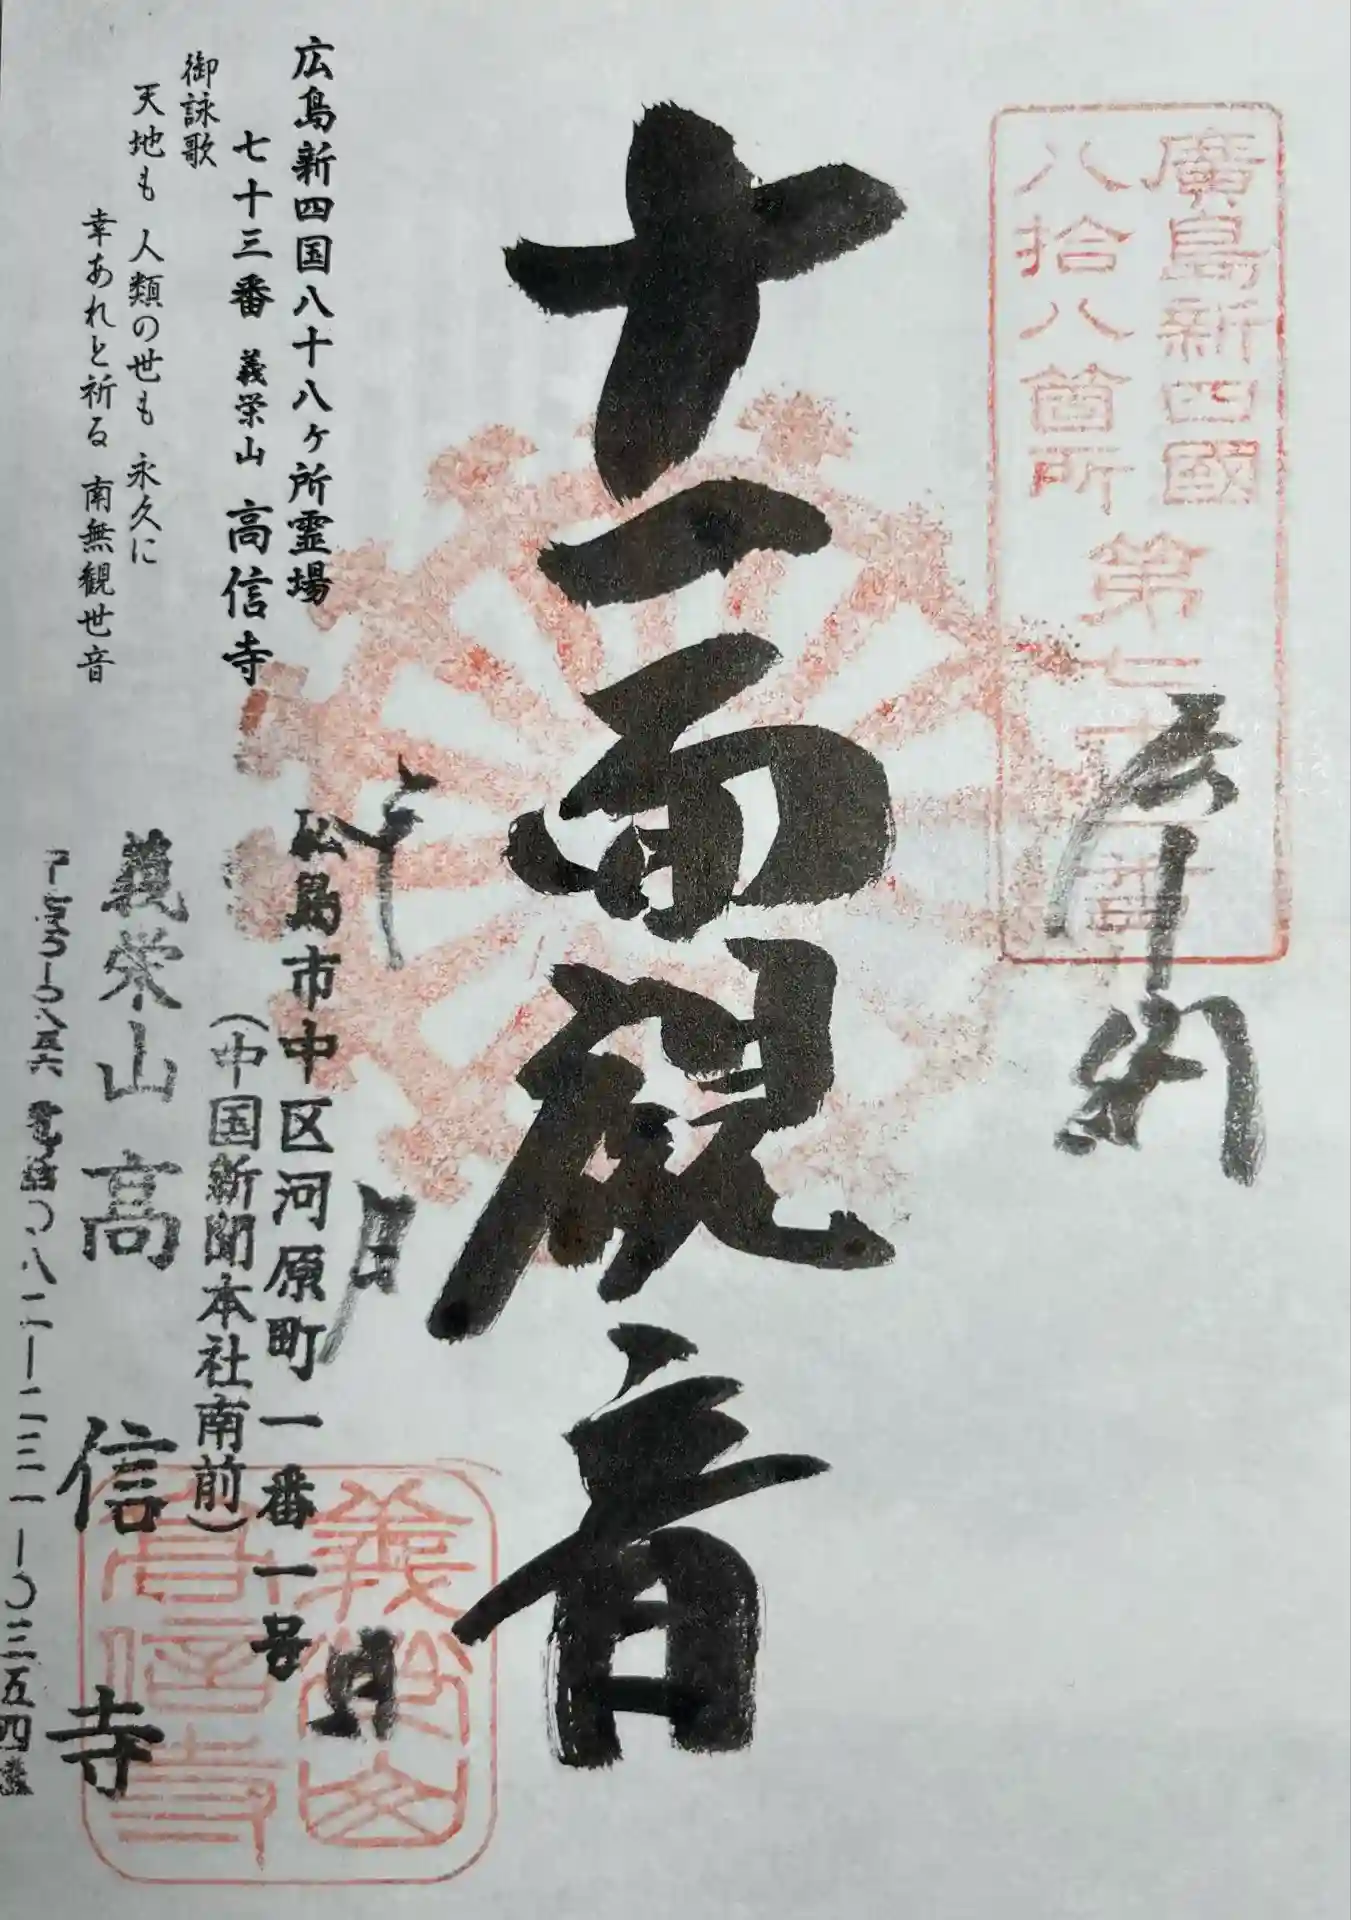 廣島新四國
八拾八箇所
第七十三番
奉納
十一面観音
年 月 日
広島新四国八十八ヶ所霊場
七十三番 義栄山 高信寺
御詠歌
天地も 人類の世も 永久に
幸あれと祈る 南無観世音
広島市中区河原町一番一号
(中国新聞本社南前)
義栄山 高信寺
〒七三〇-〇八五六 電話〇八二-二三一-〇三五四番
義栄山
高信寺